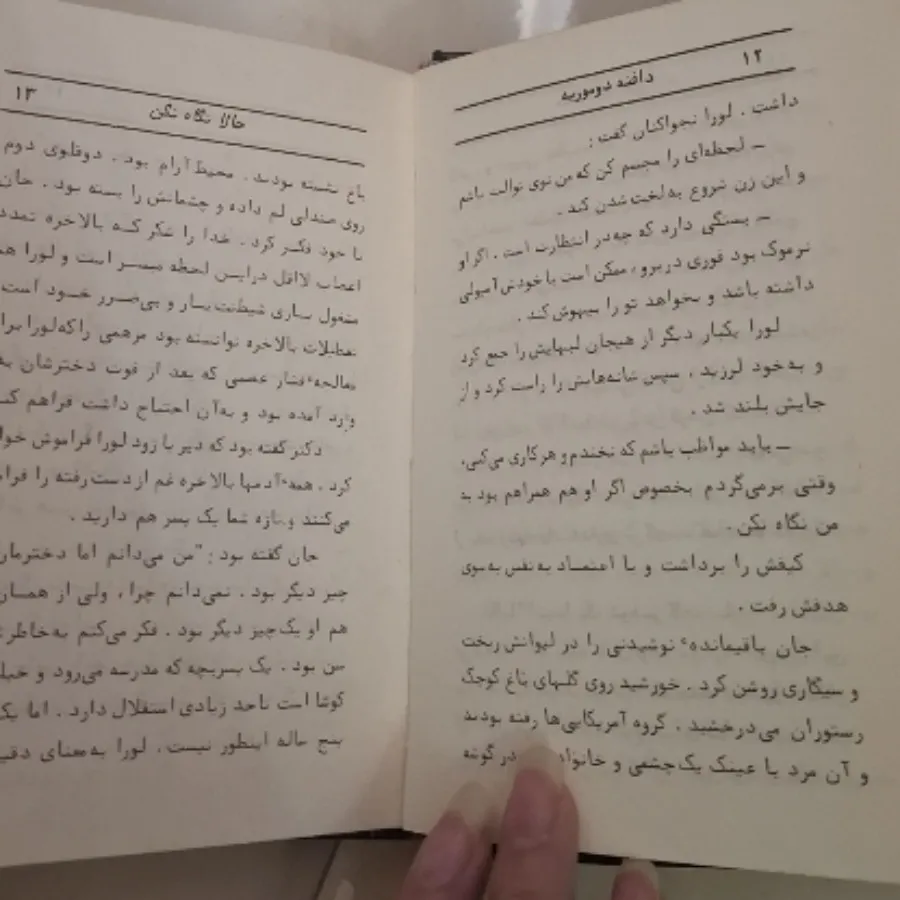 ۱۲
دافنه دوموریه
داشت . لورا نجواکنان گفت :
ـ لحظه‌ای را مجسم کن که من توی توالت باشم
و این زن شروع به لخت شدن کند .
ـ بستگی دارد که چه در انتظارت است . اگر او
نرموک بود فوری در برو ، ممکن است با خودش آمپولی
داشته باشد و بخواهد تو را بیهوش کند .
لورا یکبار دیگر از هیجان لبهایش را جمع کرد
و به خود لرزید ، سپس شانه‌هایش را راست کرد و از
جایش بلند شد .
ـ باید مواظب باشم که نخندم و هر کاری می‌کنی،
وقتی برمی‌گردم بخصوص اگر او هم همراهم بود به
من نگاه نکن .
کیفش را برداشت و با اعتماد به نفس به سوی
هدفش رفت .
جان باقیماندهٔ نوشیدنی را در لیوانش ریخت
و سیگاری روشن کرد . خورشید روی گلهای باغ کوچک
رستوران می‌درخشید . گروه آمریکایی‌ها رفته بودند
و آن مرد با عینک یک‌چشمی و در گوشه
۱۳
حالا نگاه نکن
باغ نشسته بودند . محیط آرام بود . دوقلوی دوم
روی صندلی لم داده و چشمانش را بسته بود . جان
با خود فکر کرد . خدا را شکر که بالاخره
اعصاب لااقل در این لحظه میسر است و لورا
مشغول بازی شیطنت بار و بی‌ضرر خود است
تعطیلات بالاخره توانسته بود مرهمی را که لورا
معالجهٔ فشار عصبی که بعد از فوت دخترشان
وارد آمده بود و به‌آن احتیاج داشت فراهم
دکتر گفته بود که دیر یا زود لورا فراموش
کرد . همهٔ آدمها بالاخره غم از دست رفته را
می‌کنند و تازه شما یک پسر هم دارید .
جان گفته بود : "من می‌دانم اما
چیز دیگر بود . نمی‌دانم چرا ، ولی از
هم او یک‌چیز دیگر بود . فکر می‌کنم به‌خاطر
سن بود . یک پسربچه که مدرسه می‌رود و
کوشا است تا حد زیادی استقلال دارد . اما یک
پنج ساله اینطور نیست . لورا به‌معنای